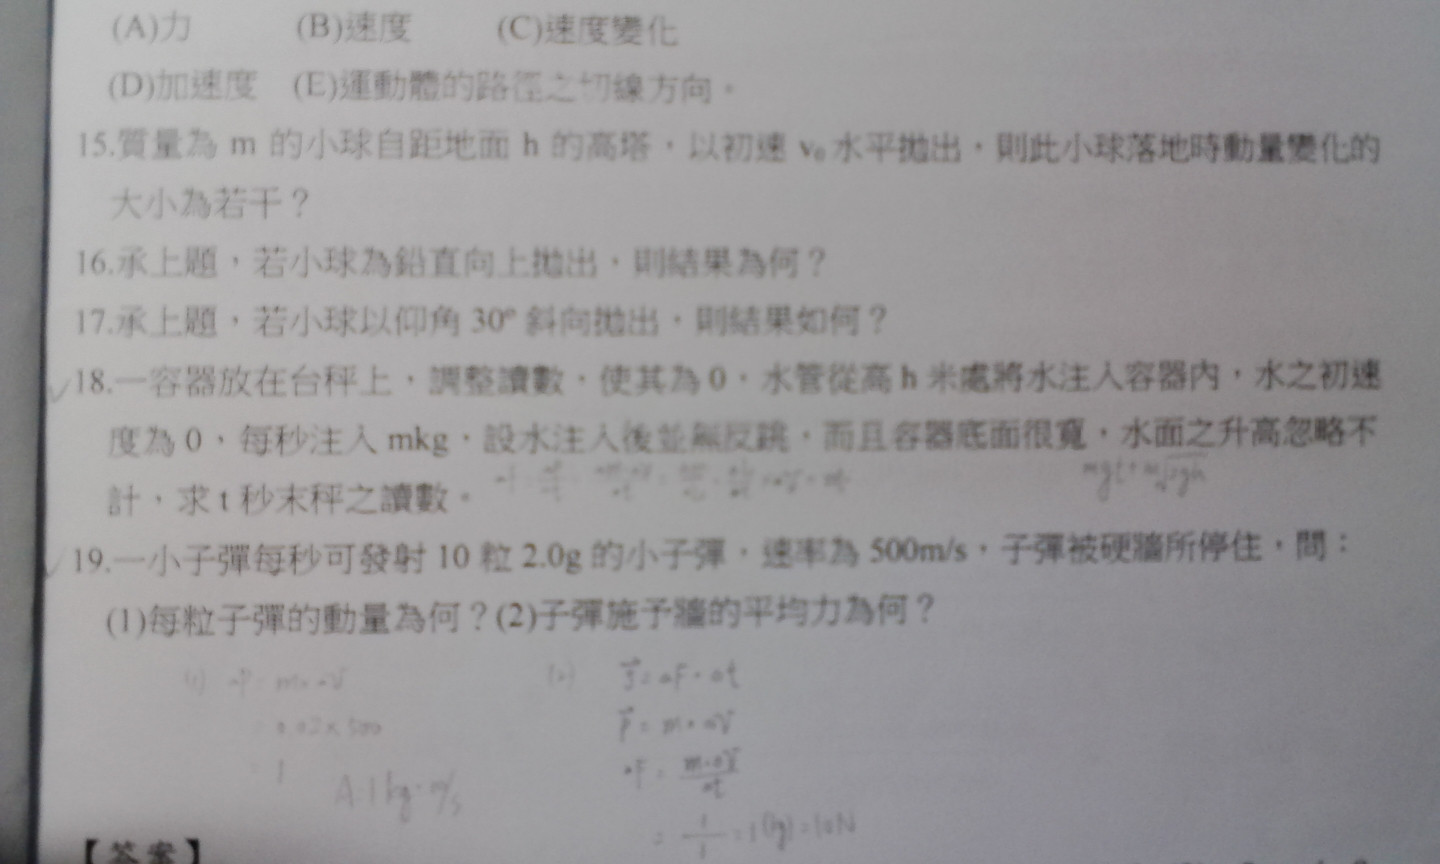 (A)力 (B)速度 (C)速度變化
(D)加速度 (E)運動體的路徑之切線方向。
15.質量為 m 的小球自距地面 h 的高塔,以初速 v₀ 水平拋出,則此小球落地時動量變化的
大小為若干?
16.承上題,若小球為鉛直向上拋出,則結果為何?
17.承上題,若小球以仰角 30° 斜向拋出,則結果如何?
18.一容器放在台秤上,調整讀數,使其為 0,水管從高 h 米處將水注入容器內,水之初速
度為 0,每秒注入 mkg,設水注入後並無反跳,而且容器底面很寬,水面之升高忽略不
計、求 t 秒末秤之讀數。
19.一小子彈每秒可發射 10 粒 2.0g 的小子彈,速率為 500m/s,子彈被硬牆所停住,問:
(1)每粒子彈的動量為何?(2)子彈施予牆的平均力為何?
(1) ΔP = m × ΔV
0.02×500
= 1
A 1 kg·m/s
(2) J = ΔF · Δt
P = m × ΔV
ΔF = m·ΔV/Δt
= 1/1 = 1(kg) = 10N
【答案】